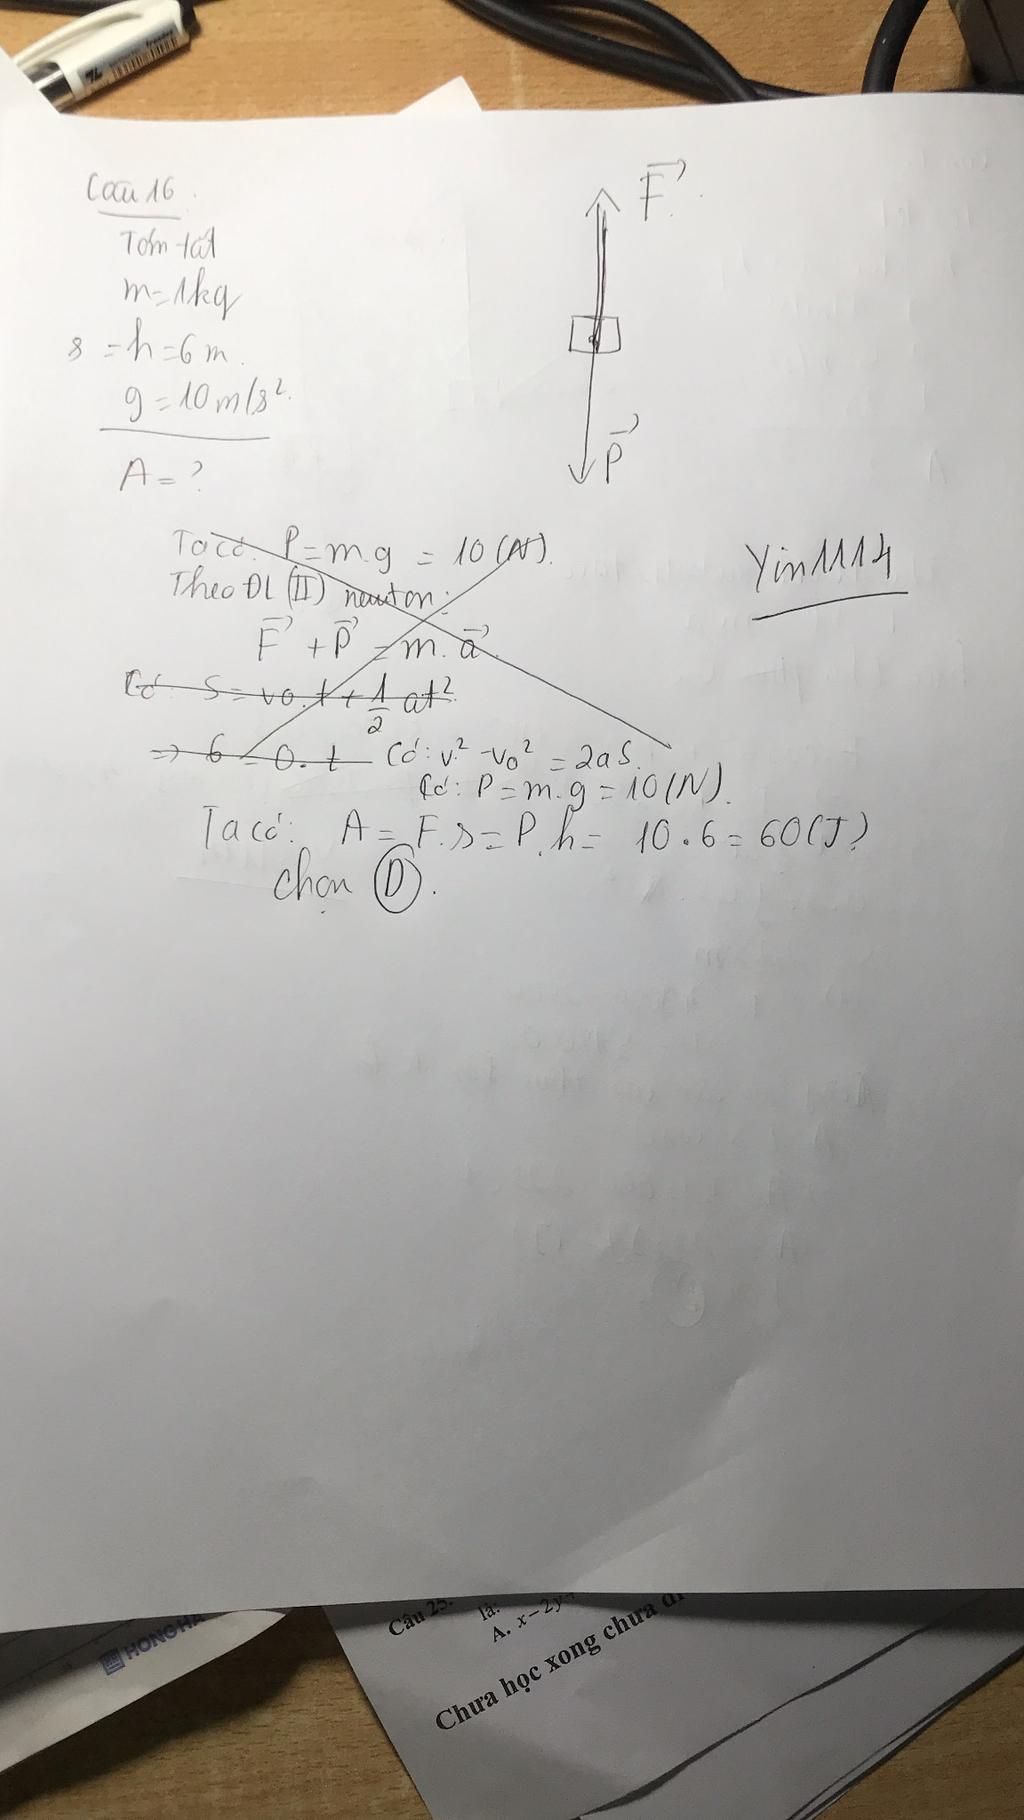 Câu 16.
Tóm tắt
m=1kg
s = h=6 m.
g=10m/s².
A=?
F⃗
P⃗
Ta có: P=m.g = 10(N).
Theo ĐL (II) newton:
F⃗ + P⃗ = m.a⃗.
Có: S = v0.t + 1/2 at²
=> 6 = 0.t Có: v² -v0² = 2aS.
Có: P=m.g=10(N).
Ta có: A = F.s = P.h= 10.6=60(J)
chọn D.
Yin1114
HONG HA
Câu 25.
là:
A. x-2y
Chưa học xong chưa đi